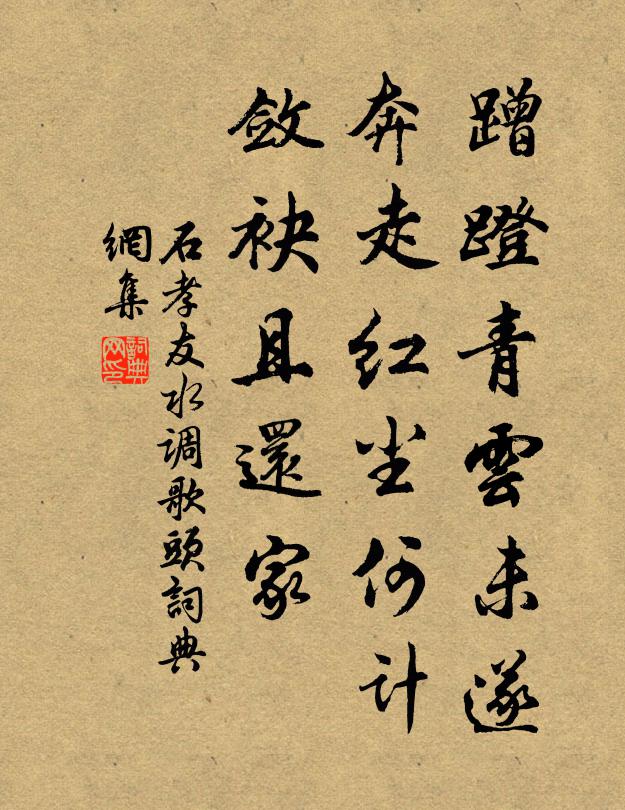 蹭蹬青雲未遂
奔走红尘何计
斂袂且還家
石孝友水调歌頭詞典
網集
詞典
网印